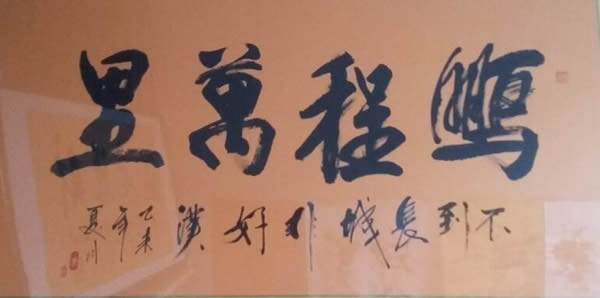 鵬程萬里
不到長城非好漢
乙未年夏月